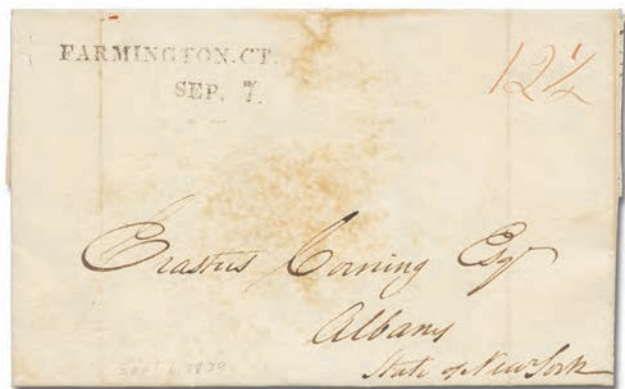 FARMINGTON.CT.
SEP. 7.
12½
Erastus Corning Esqr
Albany
State of New York